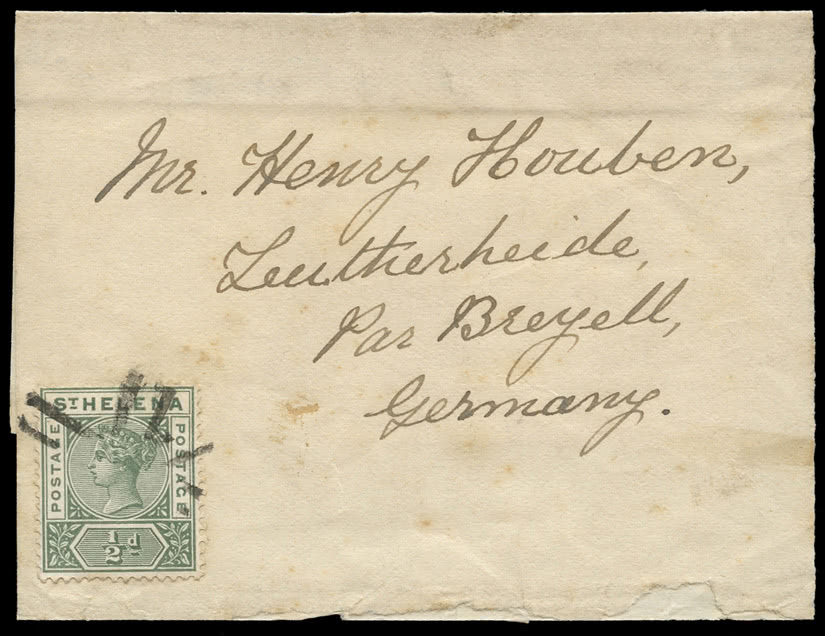 Mr. Henry Houben,
Leutherheide,
Par Breyell,
Germany.
ST HELENA
POSTAGE
POSTAGE
½d